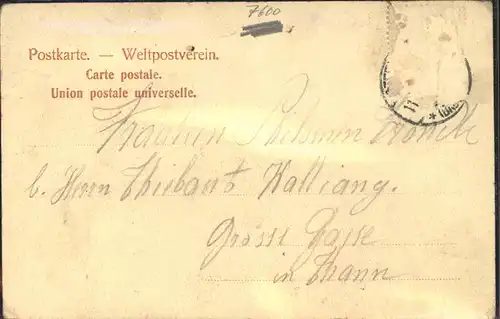 7600
Postkarte. — Weltpostverein.
Carte postale.
Union postale universelle.
Fräulein
b. Herrn Thiebaut Walliang.
Grosse Gasse
in Thann